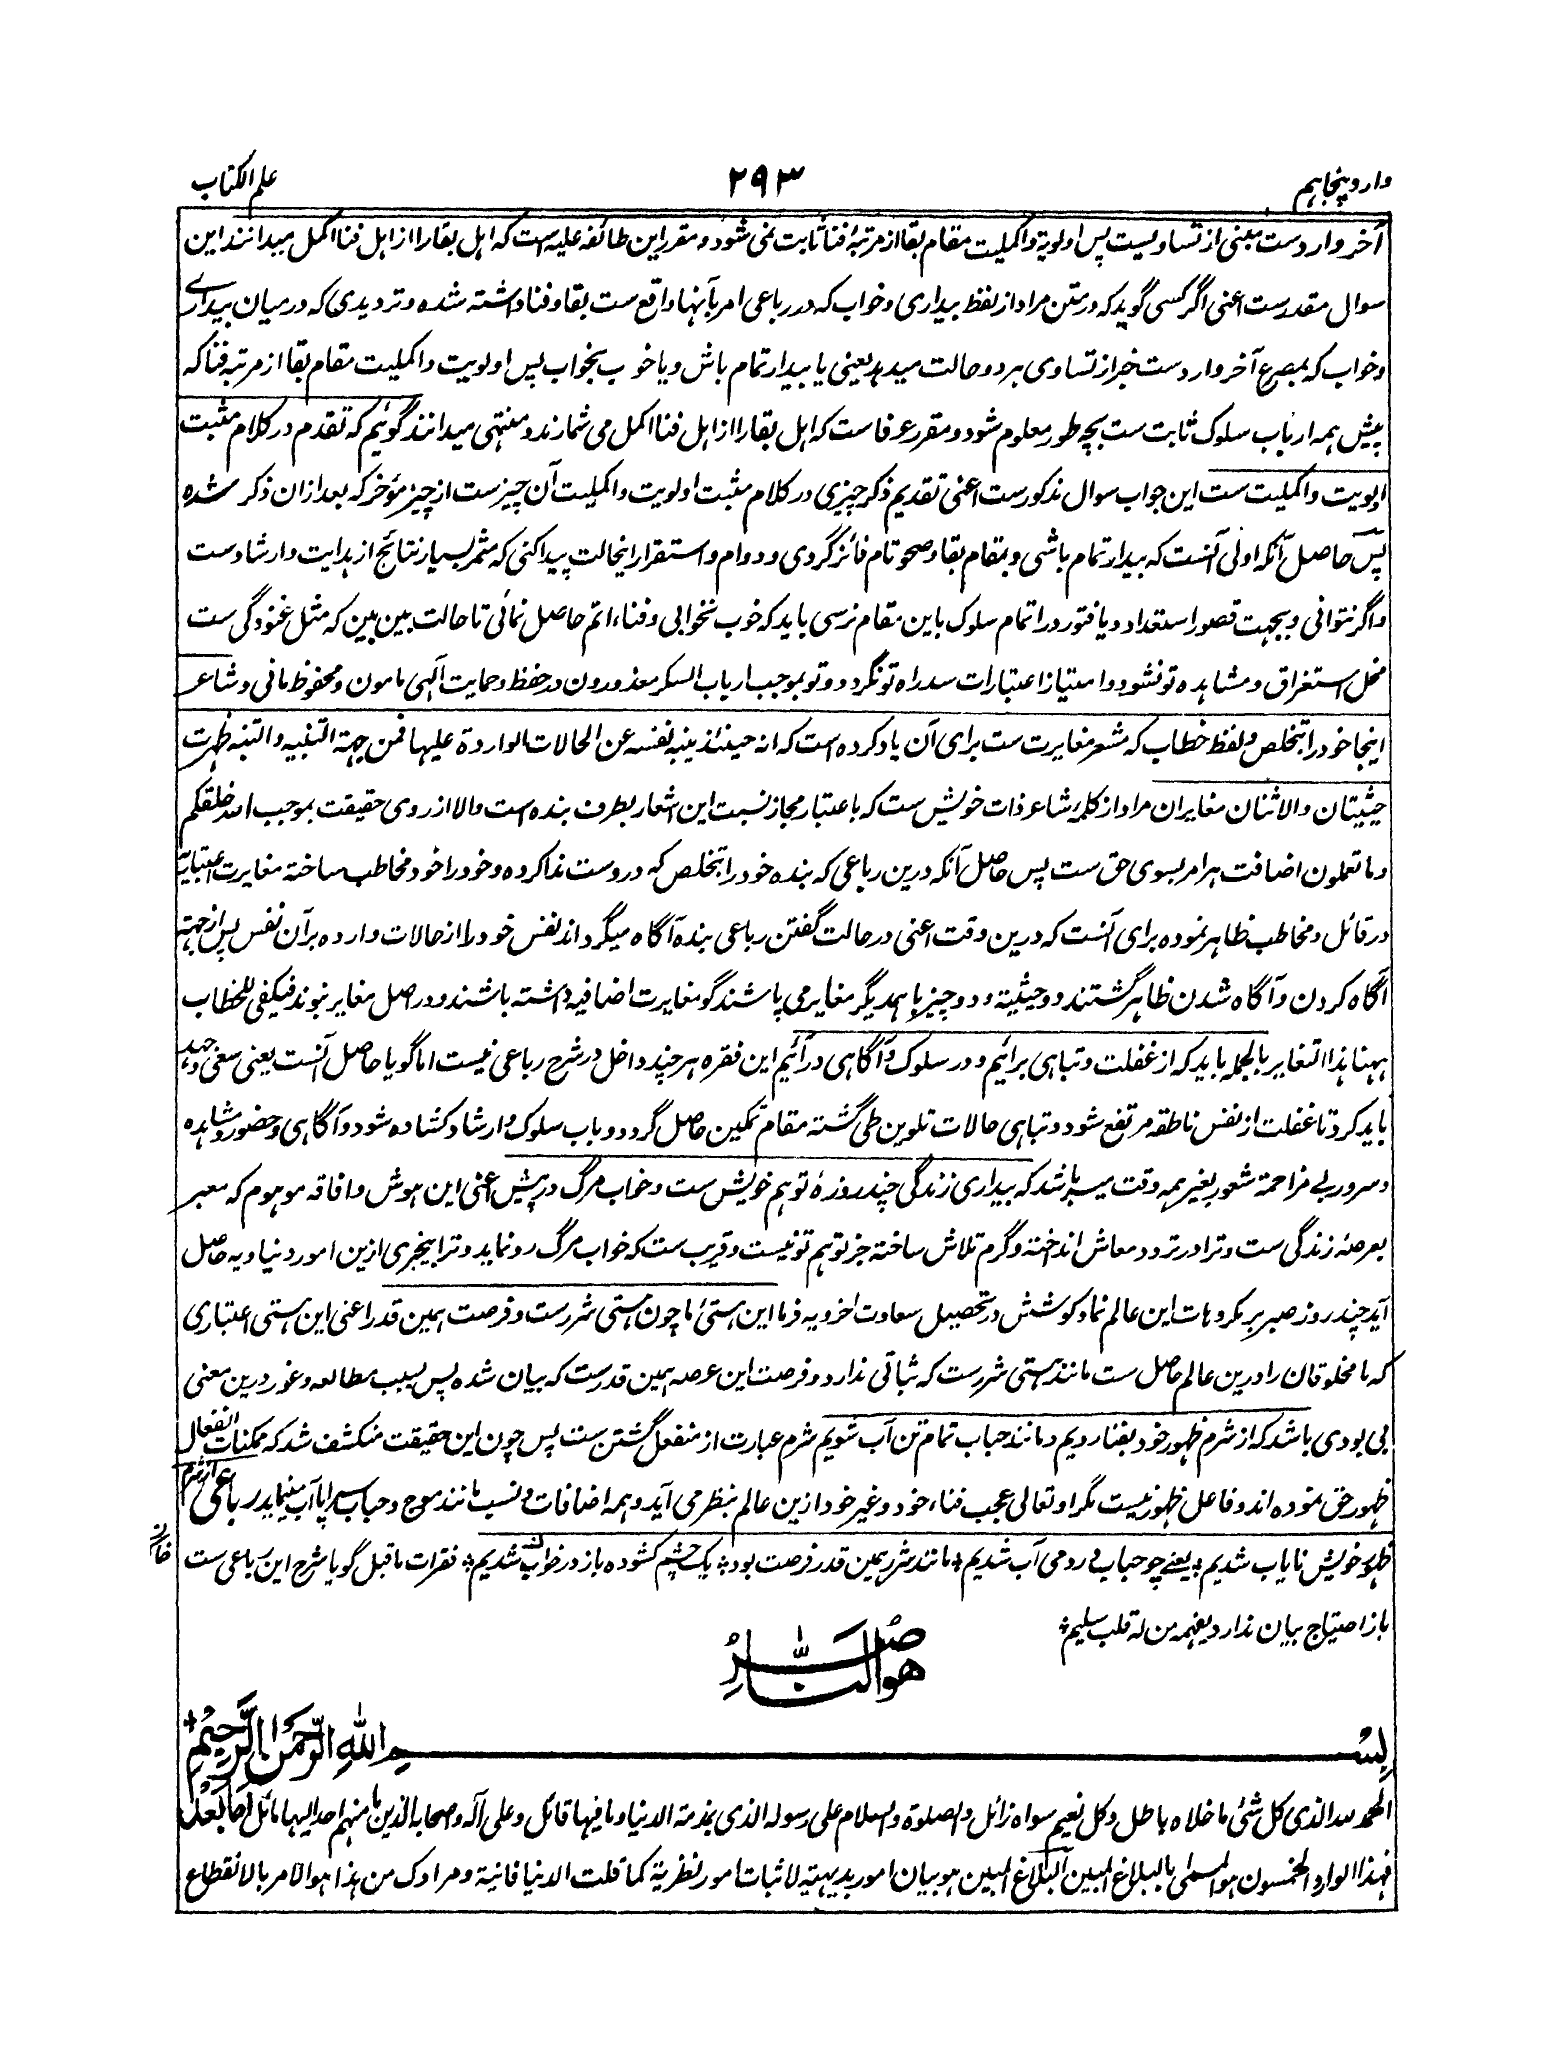 وارد پنجاهم
۲۹۳
علم الکتاب
آخر وارد ست مبنی از تساویست پس اولویة و اکملیت مقام بقا از مرتبهٔ فنا ثابت نمی شود و مقرر این طائفه علیه است که اہل بقا را از اہل فنا اکمل میدانند این
سوال مقدر ست اعنی اگر کسی گوید که در متن مراد از لفظ بیداری و خواب که در رباعی امر بآنها واقع ست بقا و فنا داشته شده و تردیدی که درمیان بیداری
و خواب که بمصرع آخر وارد ست خبر از تساوی ہر دو حالت میدہد یعنی یا بیدار تمام باش و یا خوب بخواب پس اولویت و اکملیت مقام بقا از مرتبه فنا که
پیش ہمه ارباب سلوک ثابت ست بچه طور معلوم شود و مقرر عرفاست که اہل بقا را از اہل فنا اکمل می شمارند و منتهی میدانند گوئیم که تقدم در کلام مثبت
اولویت و اکملیت ست این جواب سوال مذکور ست اعنی تقدیم ذکر چیزی در کلام مثبت اولویت و اکملیت آن چیز ست از چیز مؤخر که بعد ازان ذکر شده
پس حاصل آنکه اولی آنست که بیدار تمام باشی و بمقام بقا و صحو تام فائز گردی و دوام و استقرار اینحالت پیدا کنی که مثمر بسیار نتائج از ہدایت و ارشاد ست
و اگر نتوانی و بجهت قصور استعداد و یا فتور در اتمام سلوک باین مقام نرسی باید که خوب بخوابی و فناء اتم حاصل نمائی تا حالت بین بین که مثل غنودگی ست
مخل استغراق و مشاہده تو نشود و امتیاز اعتبارات سد راه تو نگردد و تو بموجب ارباب السکر معذورون در حفظ و حمایت الٰہی مامون و محفوظ مانی و شاعر
اینجا خود را بتخلص و لفظ خطاب که مشعر مغایرت ست برای آن یاد کرده است که انه حینئذ ینبه نفسه عن الحالات الواردة علیها فمن جهة التنبیه و التنبه ظهرت
حیثیتان والاثنان مغایران مراد از کلمهٔ شاعر ذات خویش ست که باعتبار مجاز نسبت این اشعار بطرف بنده است والا از روی حقیقت بموجب الله خلقکم
و ما تعملون اضافت ہر امر بسوی حق ست پس حاصل آنکه درین رباعی که بنده خود را بتخلص که درد ست ندا کرده و خود را خود مخاطب ساخته مغایرت اعتباریه
در قائل و مخاطب ظاہر نموده برای آنست که درین وقت اعنی در حالت گفتن رباعی بنده آگاه میگرداند نفس خود را از حالات وارده بر آن نفس پس از جهته
آگاه کردن و آگاه شدن ظاہر گشتند دو حیثیة و دو چیز با ہمدیگر مغایر می باشند گو مغایرت اضافیه داشته باشند و در اصل مغایر نبوند فیکفی للخطاب
ہهنا ہذا التغایر بالجمله باید که از غفلت و تباہی برائیم و در سلوک و آگاہی درآئیم این فقره ہرچند داخل در شرح رباعی نیست اما گویا حاصل آنست یعنی سعی و جهد
باید کرد تا غفلت از نفس ناطقه مرتفع شود و تباہی حالات تلوین طی گشته مقام تمکین حاصل گردد و باب سلوک و ارشاد کشاده شود و آگاہی و حضور و مشاہده
و سرور بی مزاحمة شعور بغیر ہمه وقت میسر باشد که بیداری زندگی چند روزهٔ توہم خویش ست و خواب مرگ در پیش اعنی این ہوش و افاقه موہوم که معبر
بعرصهٔ زندگی ست و ترا در تردد معاش انداخته و گرم تلاش ساخته جز توہم تو نیست و قریب ست که خواب مرگ رو نماید و ترا بیخبری ازین امور دنیاویه حاصل
آید چند روز صبر بر مکروہات این عالم نما و کوشش در تحصیل سعادت اخرویه فرما این ہستئ ما چون ہستی شرر ست و فرصت ہمین قدر اعنی این ہستی اعتباری
که ما مخلوقان را درین عالم حاصل ست مانند ہستی شرر ست که ثباتی ندارد و فرصت این عرصه ہمین قدر ست که بیان شده پس بسبب مطالعه و غور درین معنی
بی بودی باشد که از شرم ظهور خود بفنا رویم و مانند حباب تمام تن آب شویم شرم عبارت از منفعل گشتن ست پس چون این حقیقت منکشف شد که ممکنات انفعال
ظهور حق نموده اند و فاعل ظهور نیست مگر او تعالی عجب فناء خود و غیر خود ازین عالم بنظر می آید و ہمه اضافات و نسب مانند موج و حباب سراپا آب مینماید رباعی از شرم
ظهور خویش نایاب شدیم یعنی چو حباب رومی آب شدیم مانند شرر ہمین قدر فرصت بود یک چشم کشوده باز در خواب شدیم فقرات ماقبل گویا شرح این رباعی ست
باز احتیاج بیان ندارد یفهمه من له قلب سلیم
هو الناصر
بسم الله الرحمن الرحیم
الحمد لله الذی کل شئ ما خلاه باطل و کل نعیم سواه زائل والصلوة والسلام علی رسوله الذی بمذمة الدنیا و ما فیها قائل و علی آله و صحابه الذین ما منهم احد الیها مائل اما بعد
فهذا الوارد الخمسون ہو المسمی بالبلاغ المبین البلاغ المبین ہو بیان امور بدیهیة لاثبات امور نظریة کما قلت الدنیا فانیة و مرادک من ہذا ہو الامر بالانقطاع